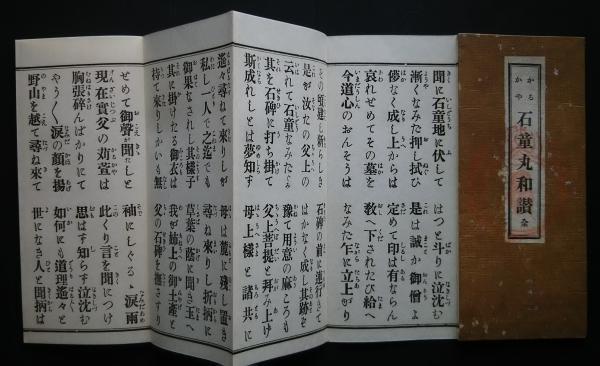 かるかや 石童丸和讃 全
聞に石童地に伏して はつと斗りに泣沈む
漸くなみだ押し拭ひ 是は誠か御僧よ
儚なく成し上からは 定めて印は有ならん
哀れせめてその墓を 教へ下されたび給へ
今道心のおんそうは なみだ乍に立上がり
その頃建し新らしき 石碑の前に連行きて
是が汝たの父上の はかなく成し其跡を
云れて石童なみだぐみ 豫て用意の麻ころも
其を石碑に打ち掛て 父上菩提と拝み上げ
斯成れしとは夢知ず 母上樣と諸共に
遙々尋ねて來りしが 母は麓に殘し置き
私し一人で之迄でも 尋ね來りし折柄に
御果なされし其樣子 草葉の蔭に聞き玉へ
其に掛けたる御衣は 我が姉上の御土產と
持て來りしかいも無 父の石碑を撫さすり
せめて御聲が聞たしと 袖にしぐるゝ淚雨
現在實父の苅萱は 此くり言を聞につけ
胸張碎んばかりにて 思はず知らず泣沈む
やう〱淚の顏を揚 如何にも道理遙々と
野山を越て尋ね來て 世になき人と聞柄は